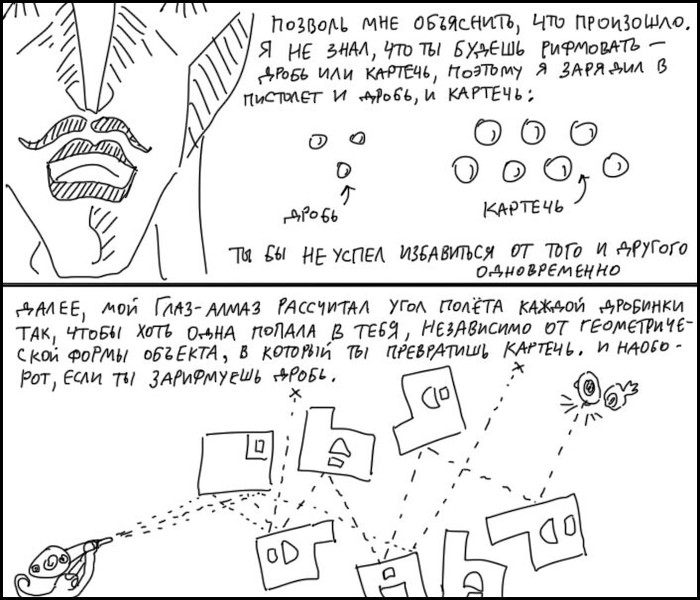 ПОЗВОЛЬ МНЕ ОБЪЯСНИТЬ, ЧТО ПРОИЗОШЛО.
Я НЕ ЗНАЛ, ЧТО ТЫ БУДЕШЬ РИФМОВАТЬ –
ДРОБЬ ИЛИ КАРТЕЧЬ, ПОЭТОМУ Я ЗАРЯДИЛ В
ПИСТОЛЕТ И ДРОБЬ, И КАРТЕЧЬ:
ДРОБЬ
КАРТЕЧЬ
ТЫ БЫ НЕ УСПЕЛ ИЗБАВИТЬСЯ ОТ ТОГО И ДРУГОГО
ОДНОВРЕМЕННО
ДАЛЕЕ, МОЙ ГЛАЗ-АЛМАЗ РАССЧИТАЛ УГОЛ ПОЛЁТА КАЖДОЙ ДРОБИНКИ
ТАК, ЧТОБЫ ХОТЬ ОДНА ПОПАЛА В ТЕБЯ, НЕЗАВИСИМО ОТ ГЕОМЕТРИЧЕ-
СКОЙ ФОРМЫ ОБЪЕКТА, В КОТОРЫЙ ТЫ ПРЕВРАТИШЬ КАРТЕЧЬ. И НАОБО-
РОТ, ЕСЛИ ТЫ ЗАРИФМУЕШЬ ДРОБЬ.